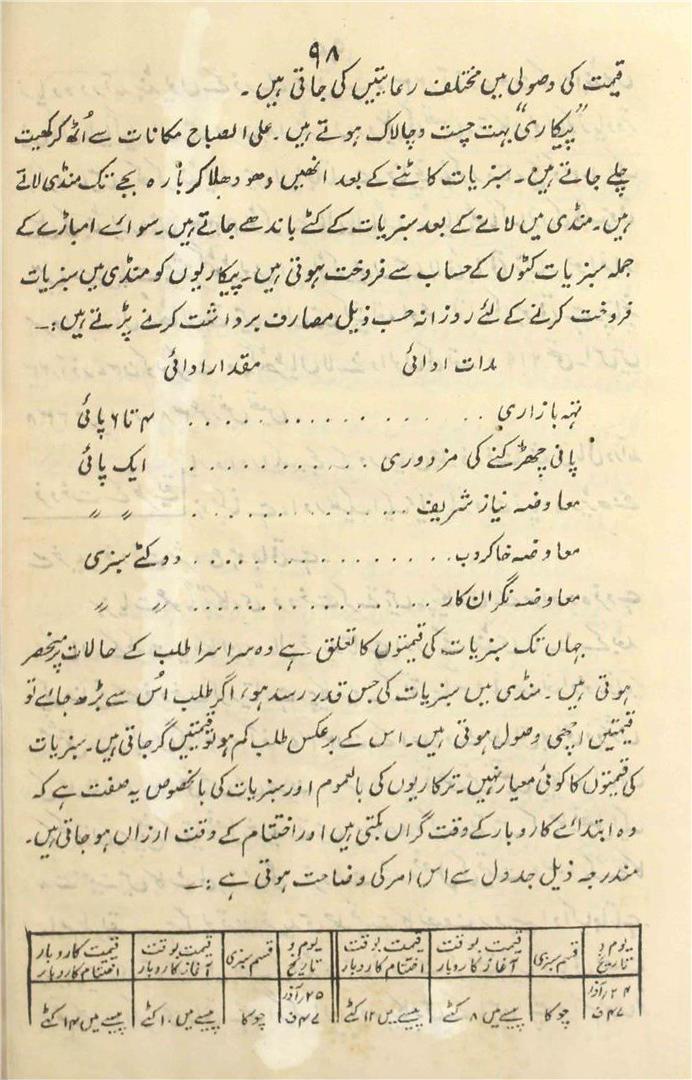 ۹۸
قیمت کی وصولی میں مختلف رعایتیں کی جاتی ہیں۔
"پیکاری" بہت چست و چالاک ہوتے ہیں۔ علی الصباح مکانات سے اُٹھ کر کھیت
چلے جاتے ہیں۔ سبزیات کاٹنے کے بعد انھیں دھو دھلا کر بارہ بجے تک منڈی لاتے
ہیں۔ منڈی میں لانے کے بعد سبزیات کے کٹے باندھے جاتے ہیں۔ سوائے امباڑے کے
جملہ سبزیات کٹوں کے حساب سے فروخت ہوتی ہیں۔ پیکاریوں کو منڈی میں سبزیات
فروخت کرنے کے لئے روزانہ حسب ذیل مصارف برداشت کرنے پڑتے ہیں:۔
مدات ادائی مقدار ادائی
تہہ بازاری .................. ۴ تا ۶ پائی
پانی چھڑکنے کی مزدوری ............ ایک پائی
معاوضہ نیاز شریف .................. 〃 〃
معاوضہ خاکروب .................. دو کٹے سبزی
معاوضہ نگران کار .................. 〃 〃
جہاں تک سبزیات کی قیمتوں کا تعلق ہے وہ سراسر طلب کے حالات پر منحصر
ہوتی ہیں۔ منڈی میں سبزیات کی جس قدر رسد ہو، اگر طلب اُس سے بڑھ جائے تو
قیمتیں اچھی وصول ہوتی ہیں۔ اس کے برعکس طلب کم ہو تو قیمتیں گر جاتی ہیں۔ سبزیات
کی قیمتوں کا کوئی معیار نہیں۔ ترکاریوں کی بالعموم اور سبزیات کی بالخصوص یہ صفت ہے کہ
وہ ابتدائے کاروبار کے وقت گراں بکتی ہیں اور اختتام کے وقت ارزاں ہو جاتی ہیں۔
مندرجہ ذیل جدول سے اس امر کی وضاحت ہوتی ہے:۔
یوم و قیمت بوقت قیمت بوقت یوم و قیمت بوقت قیمت کاروبار
تاریخ قسم سبزی آغاز کاروبار اختتام کاروبار تاریخ قسم سبزی آغاز کاروبار اختتام کاروبار
۲۴ آذر ۲۵ آذر
۴۷ ف چوکا پیسے میں ۸ کٹے پیسے میں ۱۲ کٹے ۴۷ ف چوکا پیسے میں ۱۰ کٹے پیسے میں ۱۴ کٹے